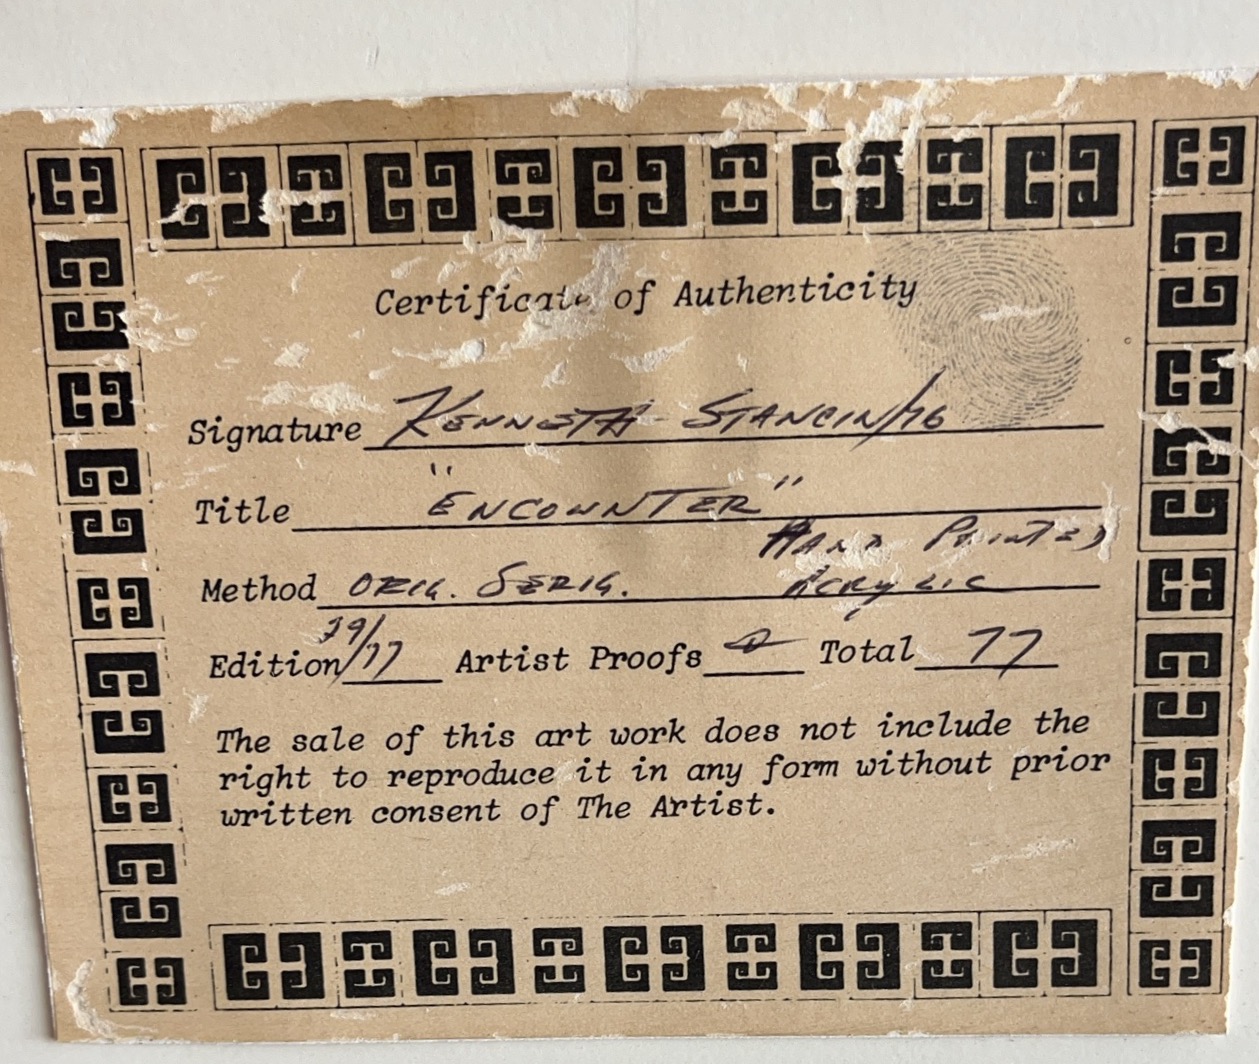 Certificate of Authenticity
Signature KENNETH STANCIN/76
Title "ENCOUNTER"
HAND PAINTED
Method ORIG. SERIG. ACRYLIC
Edition 39/77 Artist Proofs 0 Total 77
The sale of this art work does not include the
right to reproduce it in any form without prior
written consent of The Artist.